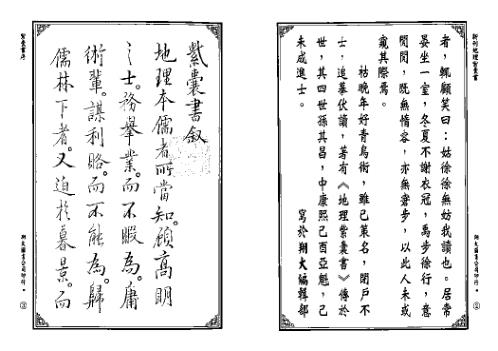 新刊地理紫囊書
者，輒顧笑曰：姑徐徐無妨我讀也。居常
晏坐一室，冬夏不謝衣冠，萬步徐行，意
閒閒，既無惰容，亦無窘步，以此人未或
窺其際焉。
祜晚年好青烏術，雖已策名，閉戶不
士，追摹伏讀，著有《地理紫囊書》傳於
世，其四世孫其昌，中康熙己酉亞魁，己
未成進士。
寫於翔大編輯部
翔大圖書公司印行
②
紫囊書叙
地理本儒者所當知。顧高明
之士。務舉業。而不暇為。庸
術輩。謀利略。而不能為。歸
儒林下者。又迫於暮景。而
紫囊書序
翔大圖書公司印行
③